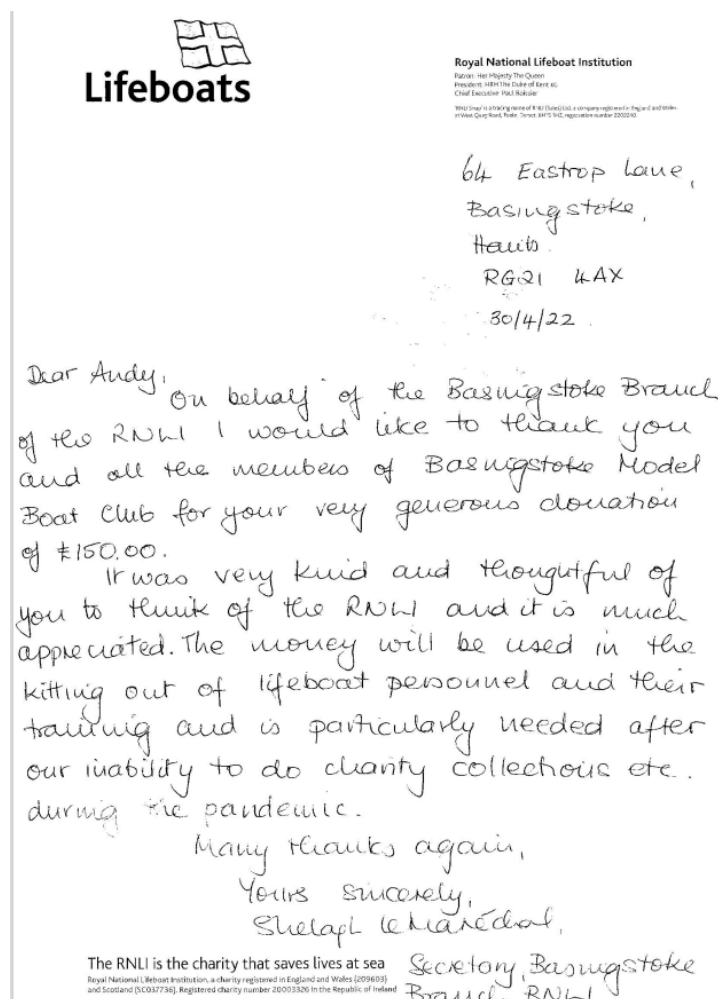 Lifeboats
Royal National Lifeboat Institution
Patron: Her Majesty The Queen
President: HRH The Duke of Kent KG
Chief Executive: Paul Boissier
'RNLI Shop' is a trading name of RNLI (Sales) Ltd, a company registered in England and Wales
at West Quay Road, Poole, Dorset, BH15 1HZ, registration number 2202240.
64 Eastrop Lane,
Basingstoke,
Hants.
RG21 4AX
30/4/22.
Dear Andy,
On behalf of the Basingstoke Branch
of the RNLI I would like to thank you
and all the members of Basingstoke Model
Boat Club for your very generous donation
of £150.00.
It was very kind and thoughtful of
you to think of the RNLI and it is much
appreciated. The money will be used in the
kitting out of lifeboat personnel and their
training and is particularly needed after
our inability to do charity collections etc.
during the pandemic.
Many thanks again,
Yours sincerely,
Shelagh Le Maréchal,
Secretary, Basingstoke
Branch, RNLI
The RNLI is the charity that saves lives at sea
Royal National Lifeboat Institution, a charity registered in England and Wales (209603)
and Scotland (SC037736). Registered charity number 20003326 in the Republic of Ireland